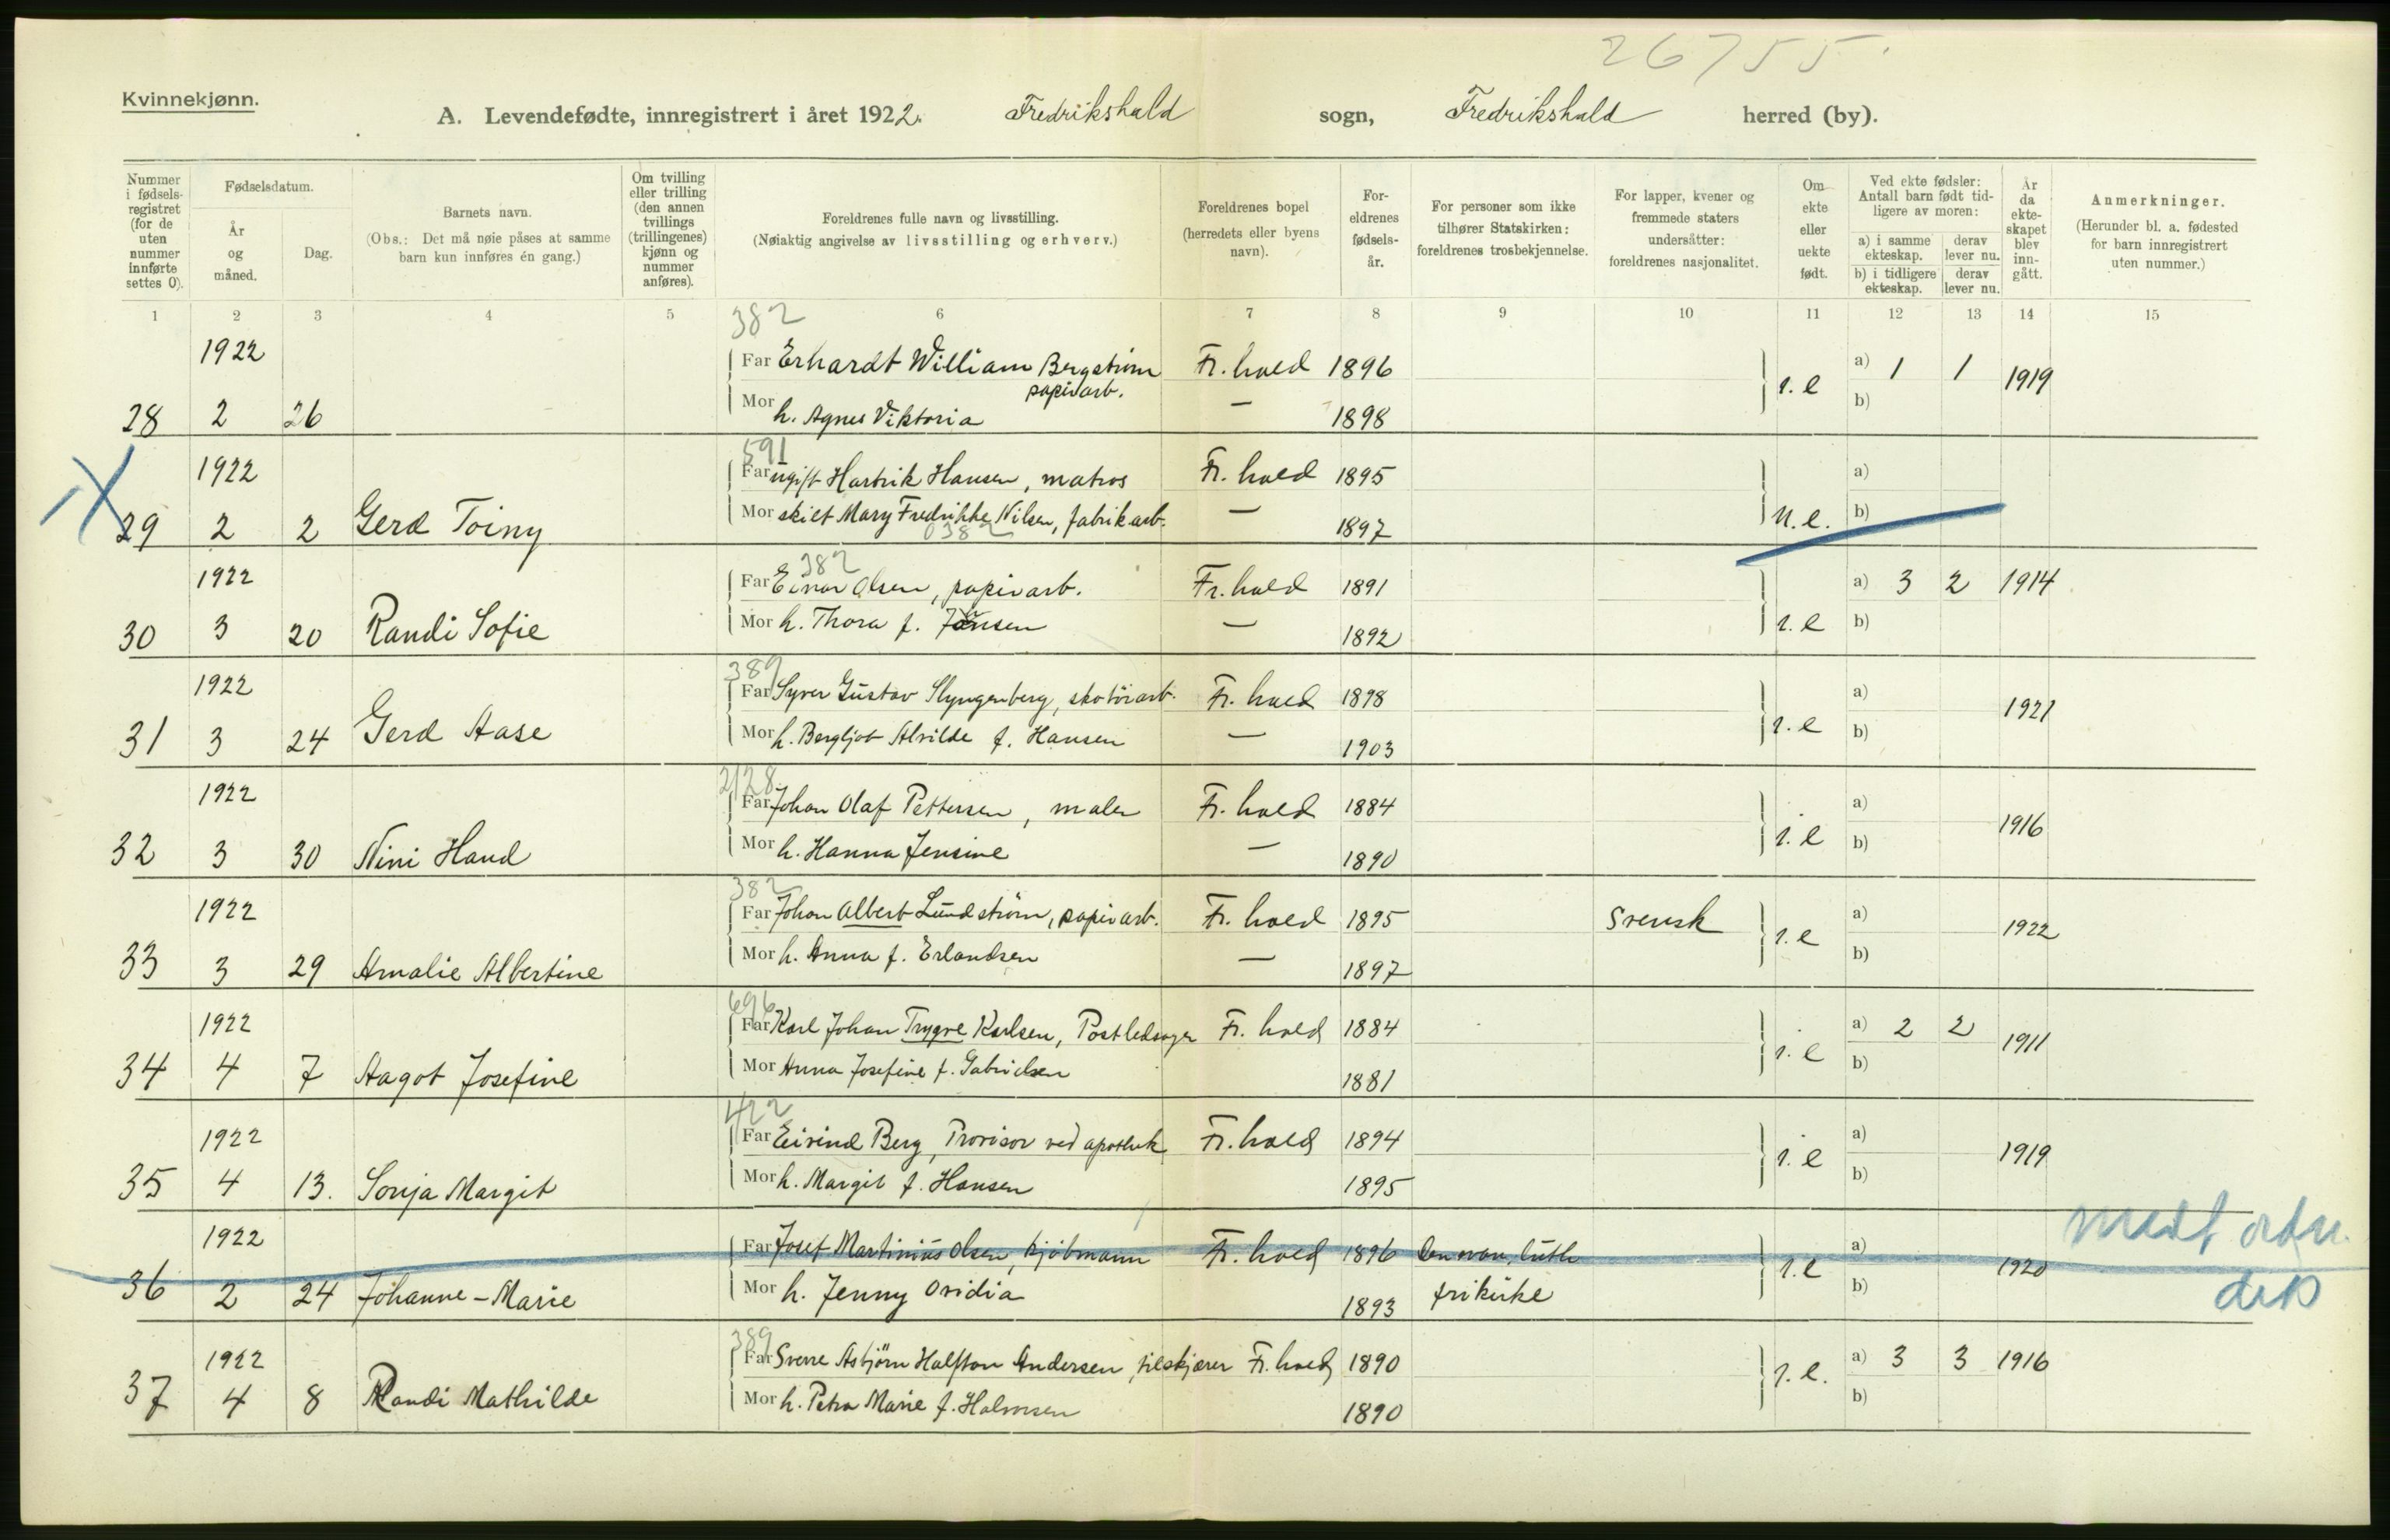 26755
Kvinnekjønn.
A. Levendefødte, innregistrert i året 1922. Fredrikshald sogn, Fredrikshald herred (by).
Nummer i fødselsregistret (for de uten nummer innførte settes 0).
Fødselsdatum.
År og måned.
Dag.
Barnets navn.
(Obs.: Det må nøie påses at samme barn kun innføres én gang.)
Om tvilling eller trilling (den annen tvillings (trillingenes) kjønn og nummer anføres).
Foreldrenes fulle navn og livsstilling.
(Nøiaktig angivelse av livsstilling og erhverv.)
Foreldrenes bopel (herredets eller byens navn).
Foreldrenes fødselsår.
For personer som ikke tilhører Statskirken: foreldrenes trosbekjennelse.
For lapper, kvener og fremmede staters undersåtter: foreldrenes nasjonalitet.
Om ekte eller uekte født.
Ved ekte fødsler: Antall barn født tidligere av moren:
a) i samme ekteskap. derav lever nu.
b) i tidligere ekteskap. derav lever nu.
År da ekteskapet blev inngått.
Anmerkninger.
(Herunder bl. a. fødested for barn innregistrert uten nummer.)
1 2 3 4 5 6 7 8 9 10 11 12 13 14 15
382
1922 Far Erhardt William Bergström Fr. hald 1896 a) 1 1 1919
papirarb.
28 2 26 Mor h. Agnes Viktoria — 1898 i. e b)
591
1922 Far ugift Hartvik Hansen, matros Fr. hald 1895 a)
29 2 2 Gerd Toiny Mor skilt Mary Fredrikke Nilsen, fabrikarb. — 1897 u. e. b)
0382
382
1922 Far Einar Olsen, papirarb. Fr. hald 1891 a) 3 2 1914
30 3 20 Randi Sofie Mor h. Thora f. Jansen — 1892 i. e b)
389
1922 Far Syver Gustav Slyngenberg, skotöiarb. Fr. hald 1898 a) 1921
31 3 24 Gerd Aase Mor h. Bergljot Alvilde f. Hansen — 1903 i. e b)
2128
1922 Far Johan Olaf Pettersen, maler Fr. hald 1884 a) 1916
32 3 30 Nini Haud Mor h. Hanna Jensine — 1890 i. e b)
382
1922 Far Johan Albert Lundström, papirarb. Fr. hald 1895 Svensk a) 1922
33 3 29 Amalie Albertine Mor h. Anna f. Erlandsen — 1897 i. e b)
696
1922 Far Karl Johan Trygve Karlsen, Postledsager Fr. hald 1884 a) 2 2 1911
34 4 7 Aagot Josefine Mor Anna Josefine f. Gabrielsen 1881 i. e b)
422
1922 Far Eivind Berg, Provisor ved apothek Fr. hald 1894 a) 1919
35 4 13. Sonja Margit Mor h. Margit f. Hansen 1895 i. e b)
1922 Far Josef Martinius Olsen, kjöbmann Fr. hald 1896 Den evan. luth a) 1920
36 2 24 Johanne-Marie Mor h. Jenny Ovidia 1893 frikirke i. e b)
389
1922 Far Sverre Asbjörn Halfdan Andersen, filskjærer Fr. hald 1890 a) 3 3 1916
37 4 8 Randi Mathilde Mor h. Petra Marie f. Halvorsen 1890 i. e. b)